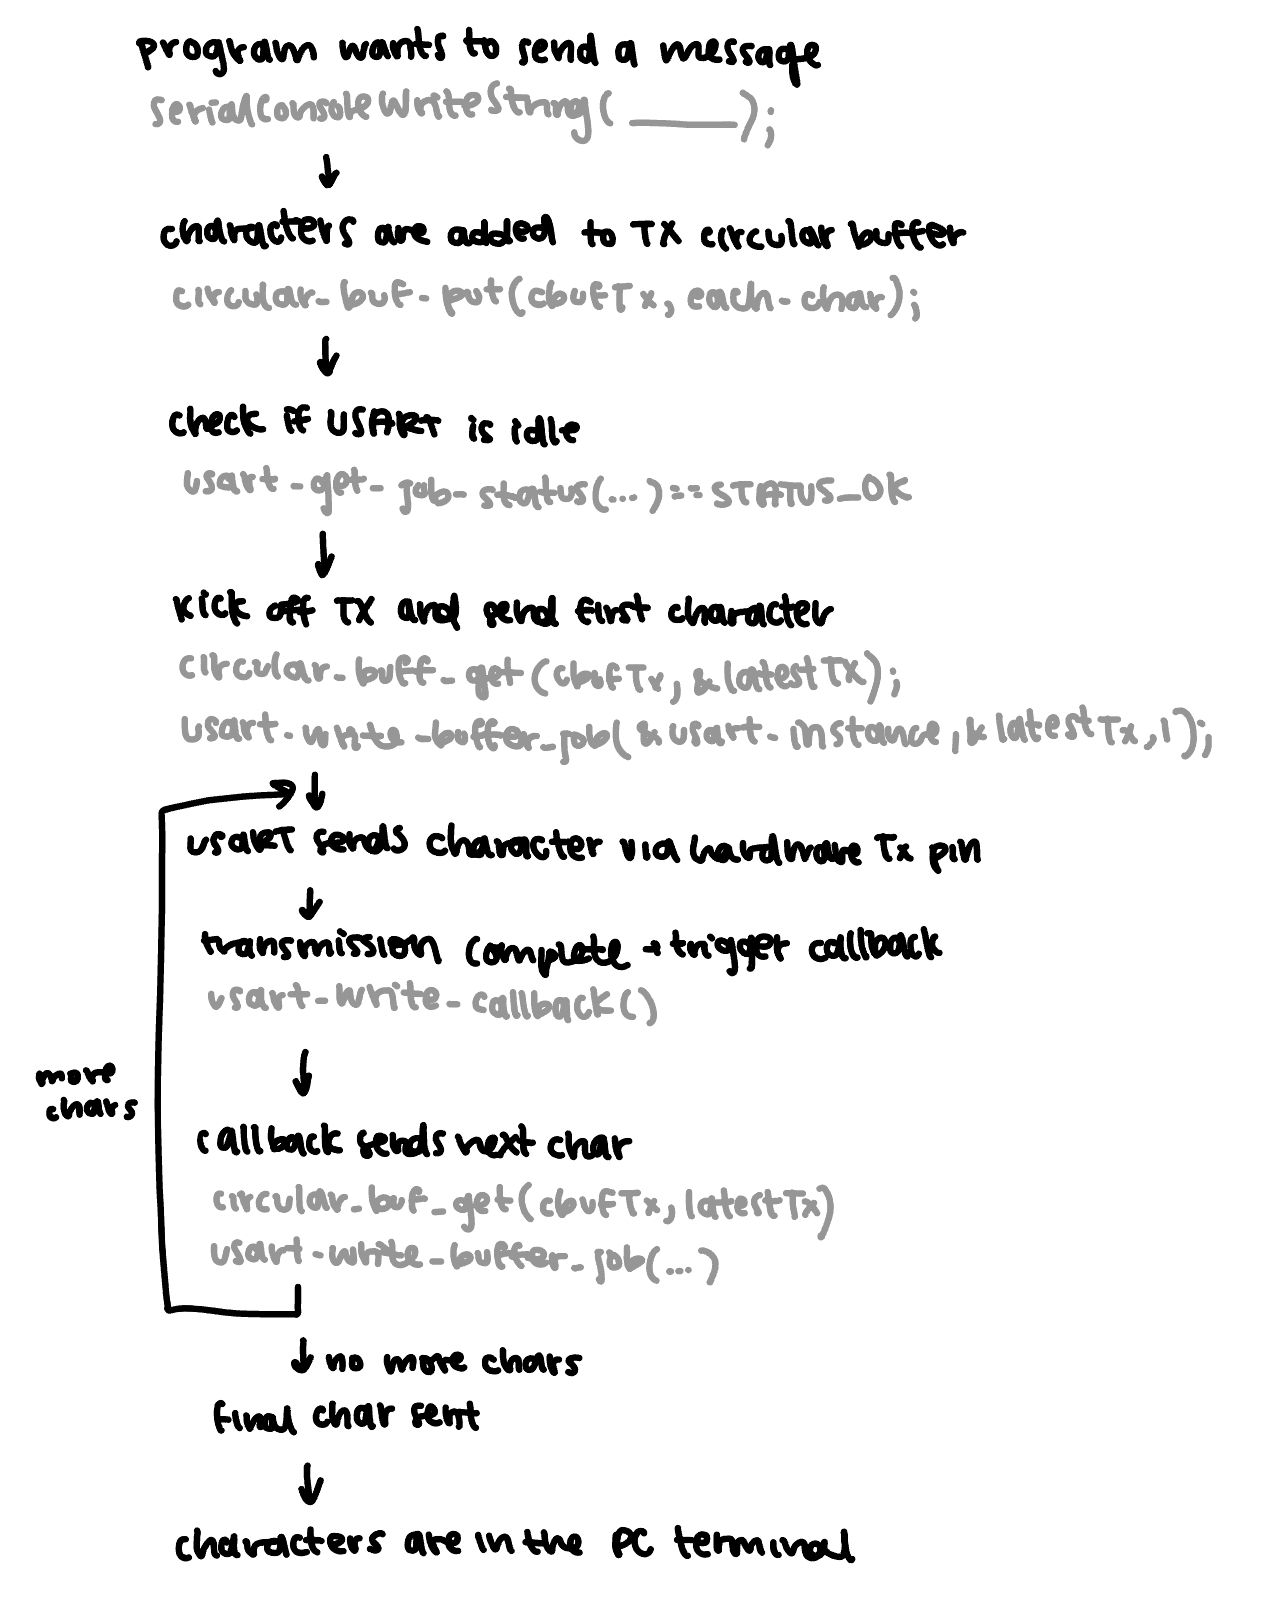 program wants to send a message
SerialConsoleWriteString( _____ );
characters are added to TX circular buffer
circular_buf_put(cbufTx, each_char);
check if USART is idle
usart_get_job_status(...) == STATUS_OK
kick off TX and send first character
circular_buff_get(cbufTx, &latestTX);
usart_write_buffer_job(&usart_instance, &latestTx, 1);
USART sends character via hardware Tx pin
transmission complete → trigger callback
usart_write_callback()
more
chars
callback sends next char
circular_buf_get(cbufTx, latestTx)
usart_write_buffer_job(...)
no more chars
final char sent
characters are in the PC terminal